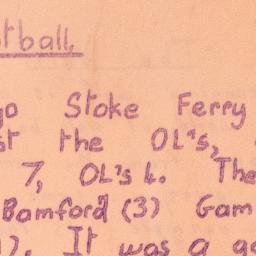 tball.
go Stoke Ferry
st the OL's,
7, OL's 4. The
Bamford (3) Gam
). It was a go